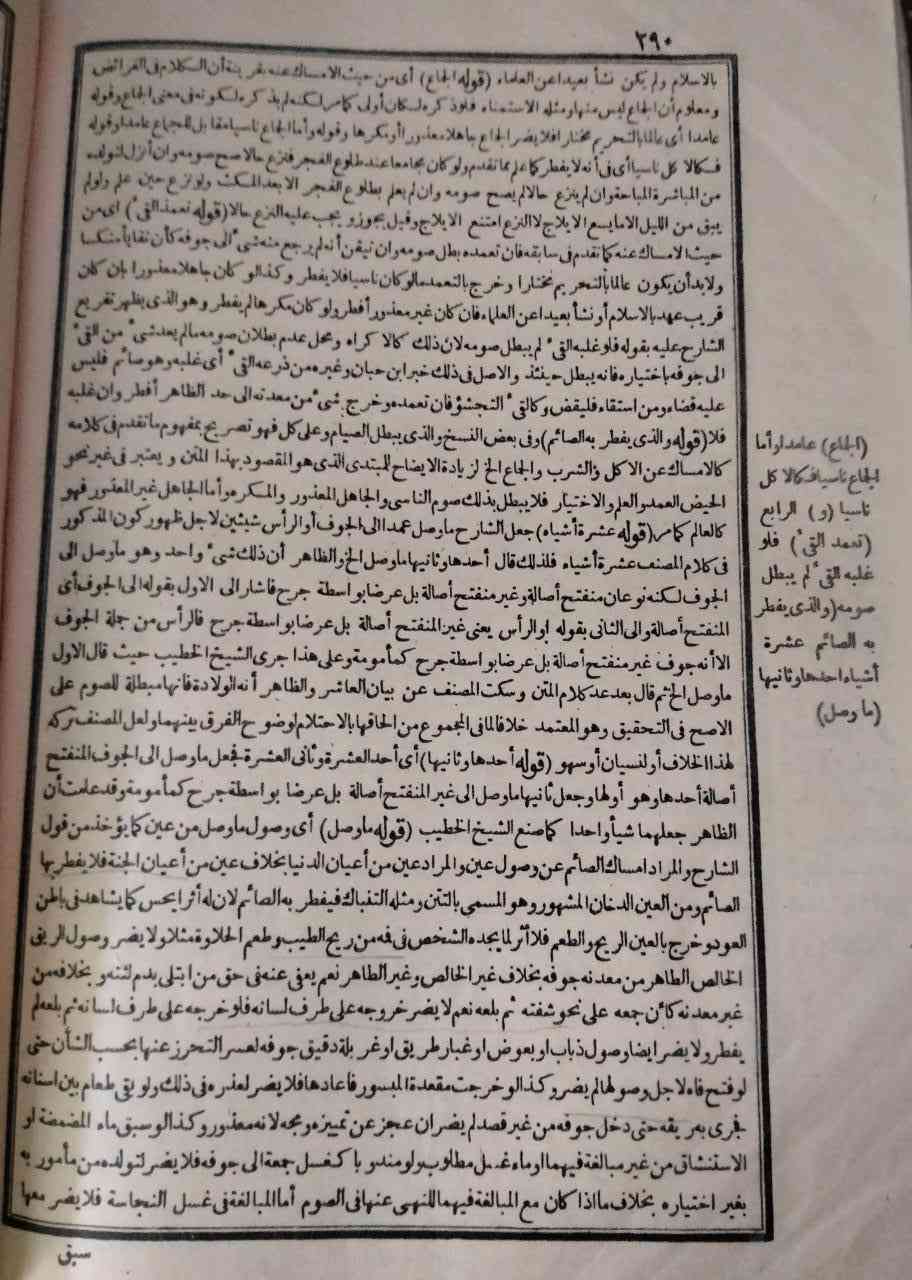 ٢٩٠
بالاسلام ولم يكن نشأ بعيدا عن العلماء (قوله الجماع) أى من حيث الامساك عنه بقرينة أن الكلام فى الفرائض
ومعلوم أن الجماع ليس منها ومثله الاستمناء فلو ذكره لكان أولى كما مر لكنه لم يذكره لكونه فى معنى الجماع وقوله
عامدا أى عالما بالتحريم مختارا فلا يضر الجماع جاهلا معذورا أو مكرها وقوله وأما الجماع ناسيا مقابل للجماع عامدا وقوله
فكالاكل ناسيا أى فى أنه لا يفطر كما علم مما تقدم ولو كان مجامعا عند طلوع الفجر فنزع حالا صح صومه وان أنزل لتولده
من المباشرة المباحة وان لم ينزع حالا لم يصح صومه وان لم يعلم بطلوع الفجر الا بعد المكث ولو نزع حين علم ولو لم
يبق من الليل الا ما يسع الايلاج لا النزع امتنع الايلاج وقيل يجوز ويجب عليه النزع حالا (قوله تعمد القىء) اى من
حيث الامساك عنه كما تقدم فى سابقه فان تعمده بطل صومه وان تيقن أنه لم يرجع منه شىء الى جوفه كأن تقايأ منكسا
ولا بد أن يكون عالما بالتحريم مختارا وخرج بالتعمد ما لو كان ناسيا فلا يفطر وكذا لو كان جاهلا معذورا بان كان
قريب عهد بالاسلام أو نشأ بعيدا عن العلماء فان كان غير معذور أفطر ولو كان مكرها لم يفطر وهو الذى يظهر تفريع
الشارح عليه بقوله فلو غلبه القىء لم يبطل صومه لان ذلك كالاكراه ومحل عدم بطلان صومه ما لم يعد شىء من القىء
الى جوفه باختياره فانه يبطل حينئذ والاصل فى ذلك خبر ابن حبان وغيره من ذرعه القىء أى غلبه وهو صائم فليس
عليه قضاء ومن استقاء فليقض وكالقىء التجشؤ فان تعمده وخرج شىء من معدته الى حد الظاهر أفطر وان غلبه
فلا (قوله والذى يفطر به الصائم) وفى بعض النسخ والذى يبطل الصيام وعلى كل فهو تصريح بمفهوم ما تقدم فى كلامه
كالامساك عن الاكل والشرب والجماع الخ لزيادة الايضاح للمبتدى الذى هو المقصود بهذا المتن ويعتبر فى غير نحو
الحيض العمد والعلم والاختيار فلا يبطل بذلك صوم الناسى والجاهل المعذور والمكره وأما الجاهل غير المعذور فهو
كالعالم كما مر (قوله عشرة أشياء) جعل الشارح ما وصل عمدا الى الجوف أو الرأس شيئين لاجل ظهور كون المذكور
فى كلام المصنف عشرة أشياء فلذلك قال أحدها وثانيها ما وصل الخ والظاهر أن ذلك شىء واحد وهو ما وصل الى
الجوف لكنه نوعان منفتح أصالة وغير منفتح أصالة بل عرضا بواسطة جرح فاشار الى الاول بقوله الى الجوف أى
المنفتح أصالة والى الثانى بقوله او الرأس يعنى غير المنفتح أصالة بل عرضا بواسطة جرح فالرأس من جملة الجوف
الا أنه جوف غير منفتح أصالة بل عرضا بواسطة جرح كمأمومة وعلى هذا جرى الشيخ الخطيب حيث قال الاول
ما وصل الخ ثم قال بعد عد كلام المتن وسكت المصنف عن بيان العاشر والظاهر أنه الولادة فانها مبطلة للصوم على
الاصح فى التحقيق وهو المعتمد خلافا لما فى المجموع من الحاقها بالاحتلام لوضوح الفرق بينهما ولعل المصنف تركه
لهذا الخلاف أو لنسيان أو سهو (قوله أحدها وثانيها) أى أحد العشرة وثانى العشرة فجعل ما وصل الى الجوف المنفتح
أصالة أحدها وهو أولها وجعل ثانيها ما وصل الى غير المنفتح أصالة بل عرضا بواسطة جرح كمأمومة وقد علمت أن
الظاهر جعلهما شيأ واحدا كما صنع الشيخ الخطيب (قوله ما وصل) أى وصول ما وصل من عين كما يؤخذ من قول
الشارح والمراد امساك الصائم عن وصول عين والمراد عين من أعيان الدنيا بخلاف عين من أعيان الجنة فلا يفطر بها
الصائم ومن العين الدخان المشهور وهو المسمى بالتتن ومثله التنباك فيفطر به الصائم لان له أثرا يحس كما يشاهد فى باطن
العود وخرج بالعين الريح والطعم فلا أثر لما يجده الشخص فى فمه من ريح الطيب وطعم الحلاوة مثلا ولا يضر وصول الريق
الخالص الطاهر من معدنه جوفه بخلاف غير الخالص وغير الطاهر نعم يعفى عنه فى حق من ابتلى بدم لثته وبخلافه من
غير معدنه كأن جمعه على نحو شفته ثم بلعه نعم لا يضر خروجه على طرف لسانه فلو خرجه على طرف لسانه ثم بلعه لم
يفطر ولا يضر ايضا وصول ذباب او بعوض او غبار طريق او غربلة دقيق جوفه لعسر التحرز عنها بحسب الشأن حتى
لو فتح فاه لاجل وصولها لم يضر وكذا لو خرجت مقعدة المبسور فاعادها فلا يضر لعذره فى ذلك ولو بقى طعام بين اسنانه
فجرى به ريقه حتى دخل جوفه من غير قصد لم يضر ان عجز عن تمييزه ومجه لانه معذور وكذا لو سبق ماء المضمضة او
الاستنشاق من غير مبالغة فيهما او ماء غسل مطلوب ولو مندوبا كغسل جمعة الى جوفه فلا يضر لتولده من مأمور به
بغير اختياره بخلاف ما اذا كان مع المبالغة فيهما للنهى عنها فى الصوم أما المبالغة فى غسل النجاسة فلا يضر معها
سبق
(الجماع) عامدا وأما
الجماع ناسيا فكالاكل
ناسيا (و) الرابع
(تعمد القىء) فلو
غلبه القىء لم يبطل
صومه (والذى يفطر
به الصائم عشرة
أشياء احدها وثانيها
(ما وصل)